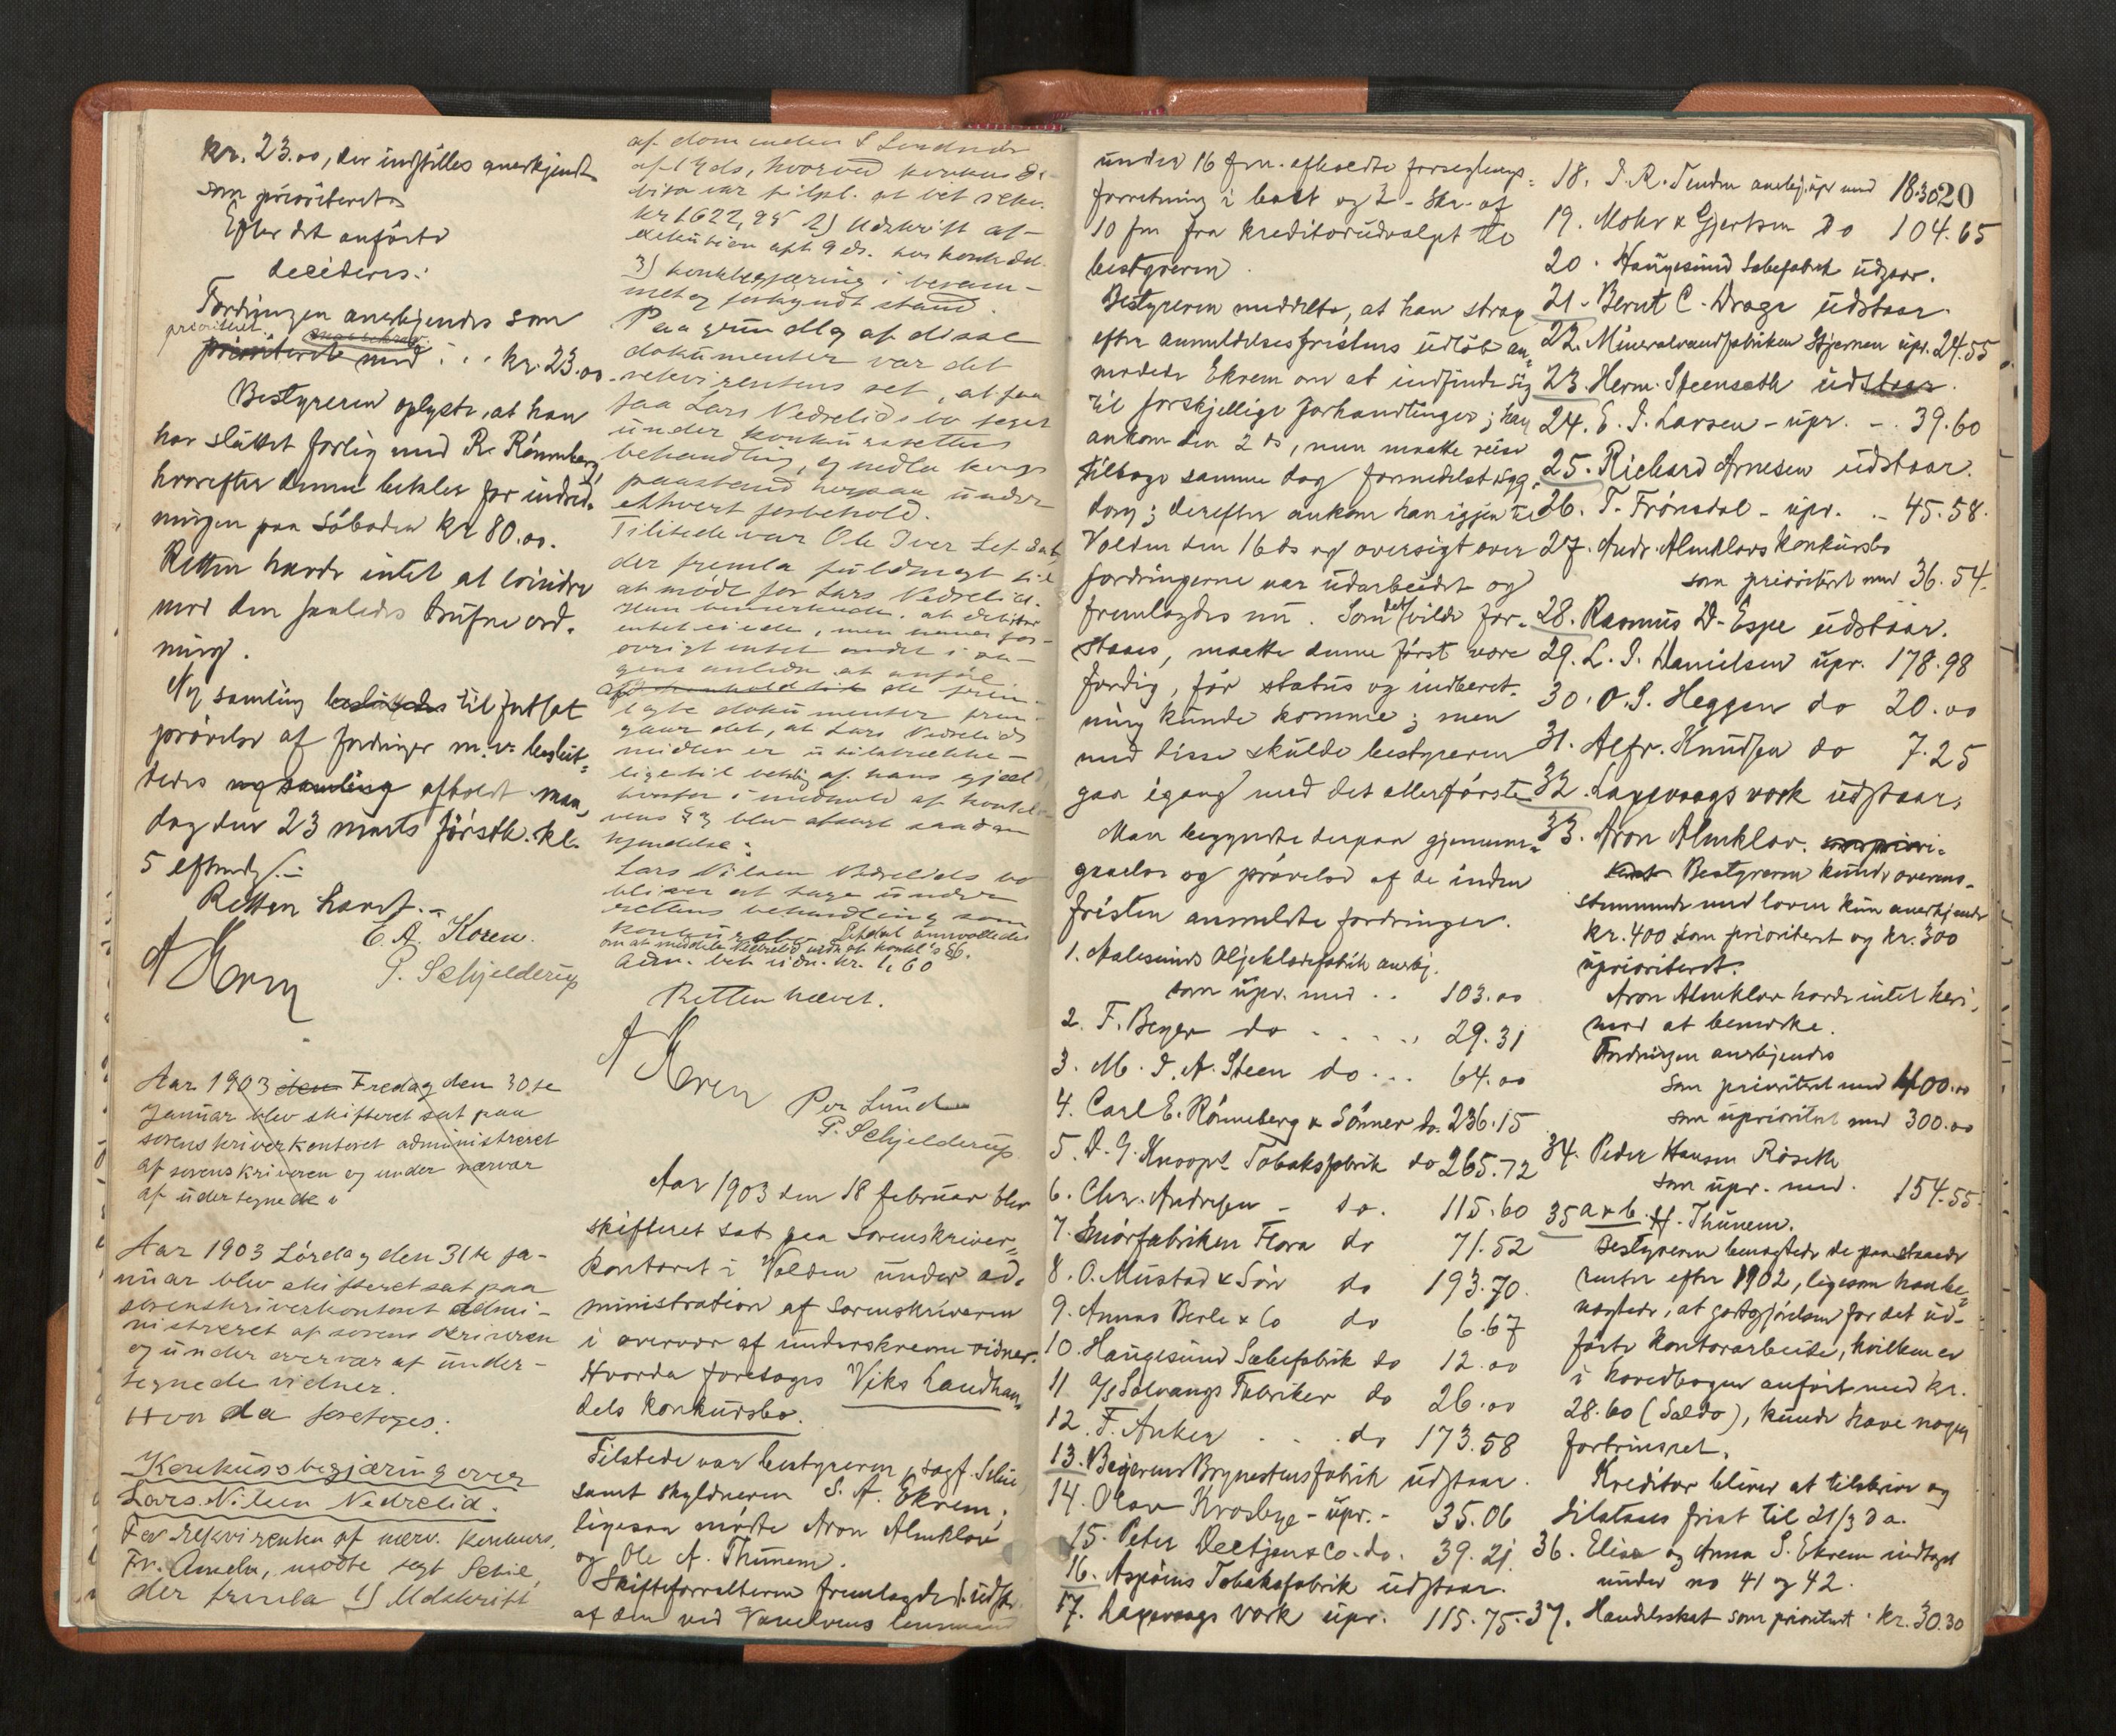 kr. 23.00, der indstilles anerkjendt
som prioriteret.
Efter det anførte
decideres:
Fordringen anerkjendes som
prioriteret
prioriteret med . . . kr. 23.00.
Bestyreren oplyste, at han
har sluttet forlig med R. Rønneberg,
hvorefter denne betaler for indred-
ningen paa Søboden kr 80.00.
Retten havde intet at erindre
mod den saaledes trufne ord-
ning.
Ny samling besluttedes til fortsat
prøvelse af fordringer m.v. beslut-
tedes ny samling afholdt man-
dag den 23 marts førstk. kl.
5 eftmdg.
Retten hævet.
E. A. Koren.
P. Schjelderup
Aar 1903 den Fredag den 30te
Januar blev skifteret sat paa
sorenskriverkontoret administreret
af sorenskriveren og under nærvær
af undertegnede v
Aar 1903 Lørdag den 31te ja-
nuar blev skifteret sat paa
sorenskriverkontoret admi-
nistreret af sorenskriveren
og under overvær af under-
tegnede vidner.
Hvor da foretoges:
Konkursbegjæring over
Lars Nilsen Nedrelid.
For rekvirenten af nærv. konkurs,
Fr. Ameln, mødte sagf Schie,
der fremla 1) Udskrift
af dom mellem
af 17 ds, hvorved konkurs de-
bitor var tilpl. at bet rekv.
kr 1622,95 2) Udskrift af
exekution aft 9 ds. hos konk. deb.
3) konkbegjæring i beram-
met og forkyndt stand.
Paa grundlag af disse
dokumenter var det
rekvirentens ret, at faa
faa Lars Nedrelids bo taget
under konkursrettens
behandling, og nedla konks
paastand herpaa under
ethvert forbehold.
Tilstede var Ole Iver Lef
der fremla fuldmagt til
at møde for Lars Nedrelid.
Han bemærkede, at debitor
intet eiede, men havde for-
øvrigt intet andet i sa-
gens anledn. at anføre.
Af de frem-
lagte dokumenter frem-
gaar det, at Lars Nedrelids
midler er utilstrække-
lige til betaling af hans gjæld,
hvorfor i medhold af konkl-
vens § 3 blev afsagt saadan
kjendelse:
Lars Nilsen Nedrelids bo
bliver at tage under
rettens behandling som
konkursbo.
om at meddele Nedrelid
Adm. bet kr. 1,60
Retten hævet.
Per Lund
P. Schjelderup
Aar 1903 den 18 februar blev
skifteret sat paa Sorenskriver-
kontoret i Volden under ad-
ministration af Sorenskriveren
i overvær af underskrevne vidner.
Hvorda foretoges Viks Landhan-
dels konkursbo.
Tilstede var bestyreren, sagf. Schie,
samt skyldneren S. A. Ekrem;
ligesaa mødte Aron Almklov
og Ole A. Thunem.
Skifteforvalteren fremlagde 1. udskr.
af den ved Vanelvens lensmand
under 16 f.m. afholdte forseglings-
forretning i boet og 2. Skr. af
10 f.m. fra kreditorudvalget til
bestyreren.
Bestyreren meddelte, at han strax
efter anmeldelsesfristens udløb an-
modede Ekrem om at indfinde sig
til forskjellige forhandlinger; han
ankom den 2 ds, men maatte reise
tilbage samme dag formedelst syg-
dom; derefter ankom han igjen til
Volden den 16 ds og oversigt over
fordringerne var udarbeidet og
fremlagdes nu. Som det vilde for-
staaes, maatte denne først være
færdig, før status og indberet-
ning kunde komme; men
med disse skulde bestyreren
gaa igang med det allerførste.
Man begyndte derpaa gjennem-
gaaelse og prøvelse af de inden
fristen anmeldte fordringer.
1. Aalesunds Oljeklædefabrik anerkj.
som upr. med . . 103.00
2. F. Beyer do . . . . 29.31
3. M. I. A. Steen do . . . 64.00
4. Carl E. Rønneberg & Sønner do. 236.15
5. D. G. Knoops Tobaksfabrik do 265.72
6. Chr. Andresen - do. 115.60
7. Smørfabriken Flora do 71.52
8. O. Mustad & Søn do 193.70.
9. Annas Berle & Co do 6.67
10. Haugesund Sæbefabrik do 12.00
11 A/S Solvangs Fabriker do 26.00
12. F. Anker . . . do 173.58
13. Brynestensfabrik udstaar.
14. Olav Krosbye - upr. - 35.06
15. Peter Deetjen & Co. do. 39.21
16. Aspøens Tobaksfabrik udstaar.
17. Laxevaags værk upr. 115.75.
18. I. R. anerkj. upr med 18.30
20
19. Mohr & Gjertsen do 104.65
20. Haugesund Sæbefabrik udgaar.
21. Bernt C. Drage udstaar.
22. Mineralvandfabriken Stjernen upr. 24.55
23. Herm. Steenseth udstaar.
24. E. I. Larsen - upr. - . 39.60
25. Richard Arnesen udstaar.
26. T. Frønsdal - upr. . - 45.58.
27. Andr. Almklovs konkursbo
som prioriteret med 36.54.
28. Rasmus D. Espe udstaar.
29. L. I. Danielsen upr. 178.98
30. O. S. Heggen do 20.00
31. Alfr. Knudsen do 7.25
32. Laxevaags værk udstaar.
33. Aron Almklov.
Bestyreren kunde overens-
stemmende med loven kun anerkjende
kr. 400 som prioriteret og kr. 300
uprioriteret.
Aron Almklov havde intet heri-
mod at bemærke.
Fordringen anerkjendes
som prioriteret med 400.00
som uprioritet med 300.00
34. Peder Hansen Røseth
som upr. med. 154.55.
35 a & b. H. Thunem.
Bestyreren benegtede de paastaaede
renter efter 1902, ligesom han be-
nægtede, at godtgjørelsen for det ud-
førte kontorarbeide, hvilken er
i hovedbogen anført med kr.
28.60 (Saldo), kunde have nogen
fortrinsret.
Kreditor bliver at tilskrive og
tilstaaes frist til 21/3 d a.
36. Elise og Anna S. Ekrem indtaget
under no 41 og 42.
37. Handelsskat som prioriteret . kr. 30.30